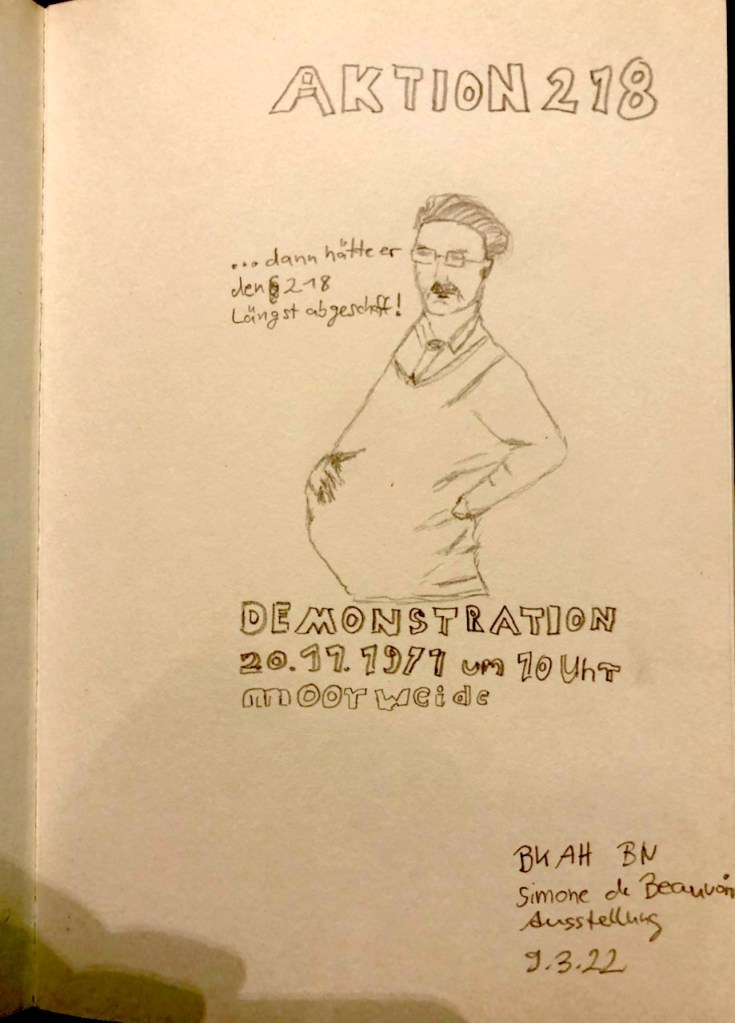 AKTION 218
... dann hätte er
den § 218
Längst abgeschafft!
DEMONSTRATION
20.11.1971 um 10 Uhr
moorweide
BKAH BN
Simone de Beauvoir
Ausstellung
9.3.22